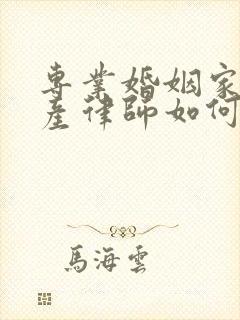 專業婚姻家
產律師如何
馬海雲